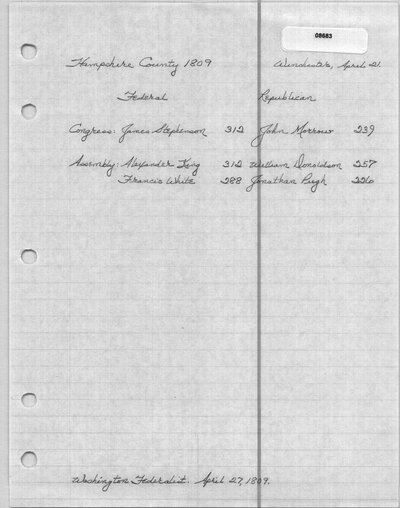 08683
Hampshire County 1809 Winchester, April 21.
Federal Republican
Congress: James Stephenson 312 John Morrow 239
Assembly: Alexander King 312 William Donaldson 257
Francis White 288 Jonathan Pugh 226
Washington Federalist. April 27, 1809.